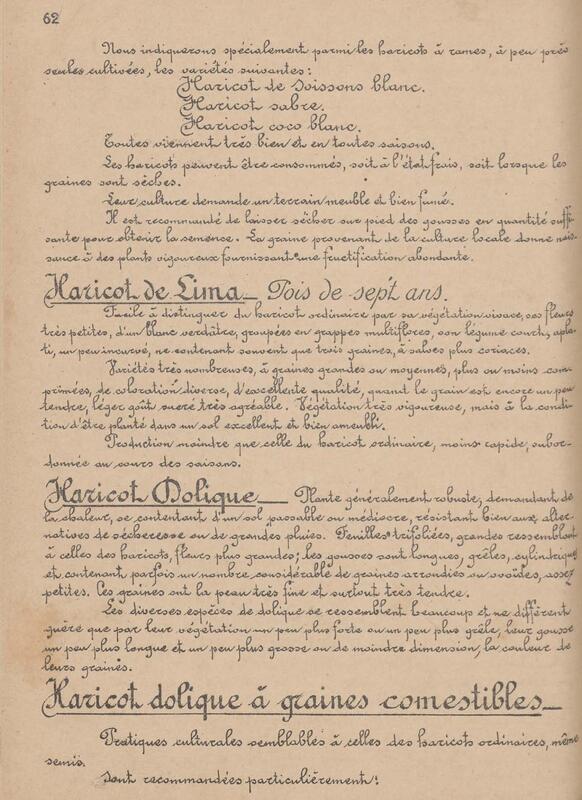 62
Nous indiquerons spécialement parmi les haricots à rames, à peu près
seules cultivées, les variétés suivantes:
Haricot de Soissons blanc.
Haricot sabre.
Haricot coco blanc.
Toutes viennent très bien et en toutes saisons.
Les haricots peuvent être consommés, soit à l'état frais, soit lorsque les
graines sont sèches.
Leur culture demande un terrain meuble et bien fumé.
Il est recommandé de laisser sécher sur pied des gousses en quantité suffi-
sante pour obtenir la semence. La graine provenant de la culture locale donne nais-
sance à des plants vigoureux fournissant une fructification abondante.
Haricot de Lima_ Pois de sept ans.
Facile à distinguer du haricot ordinaire par sa végétation vivace, ses fleurs
très petites, d'un blanc verdâtre, groupées en grappes multiflores, son légume court, apla-
ti, un peu incurvé, ne contenant souvent que trois graines, à valves plus coriaces.
Variétés très nombreuses, à graines grandes ou moyennes, plus ou moins com-
primées, de coloration diverse, d'excellente qualité, quand le grain est encore un peu
tendre, léger goût sucré très agréable. Végétation très vigoureuse, mais à la condi-
tion d'être planté dans un sol excellent et bien ameubli.
Production moindre que celle du haricot ordinaire, moins rapide, subor-
donnée au cours des saisons.
Haricot Dolique_ Plante généralement robuste, demandant de
la chaleur, se contentant d'un sol passable ou médiocre, résistant bien aux alter-
natives de sécheresse ou de grandes pluies. Feuilles trifoliées, grandes ressemblant
à celles des haricots, fleurs plus grandes; les gousses sont longues, grêles, cylindriques
et contenant parfois un nombre considérable de graines arrondies ou ovoïdes, assez
petites. les graines ont la peau très fine et surtout très tendre.
Les diverses espèces de dolique se ressemblent beaucoup et ne diffèrent
guère que par leur végétation un peu plus forte ou un peu plus grêle, leur gousse
un peu plus longue et un peu plus grosse ou de moindre dimension, la couleur de
leurs graines.
Haricot dolique à graines comestibles_
Pratiques culturales semblables à celles des haricots ordinaires, même
semis.
Sont recommandées particulièrement: